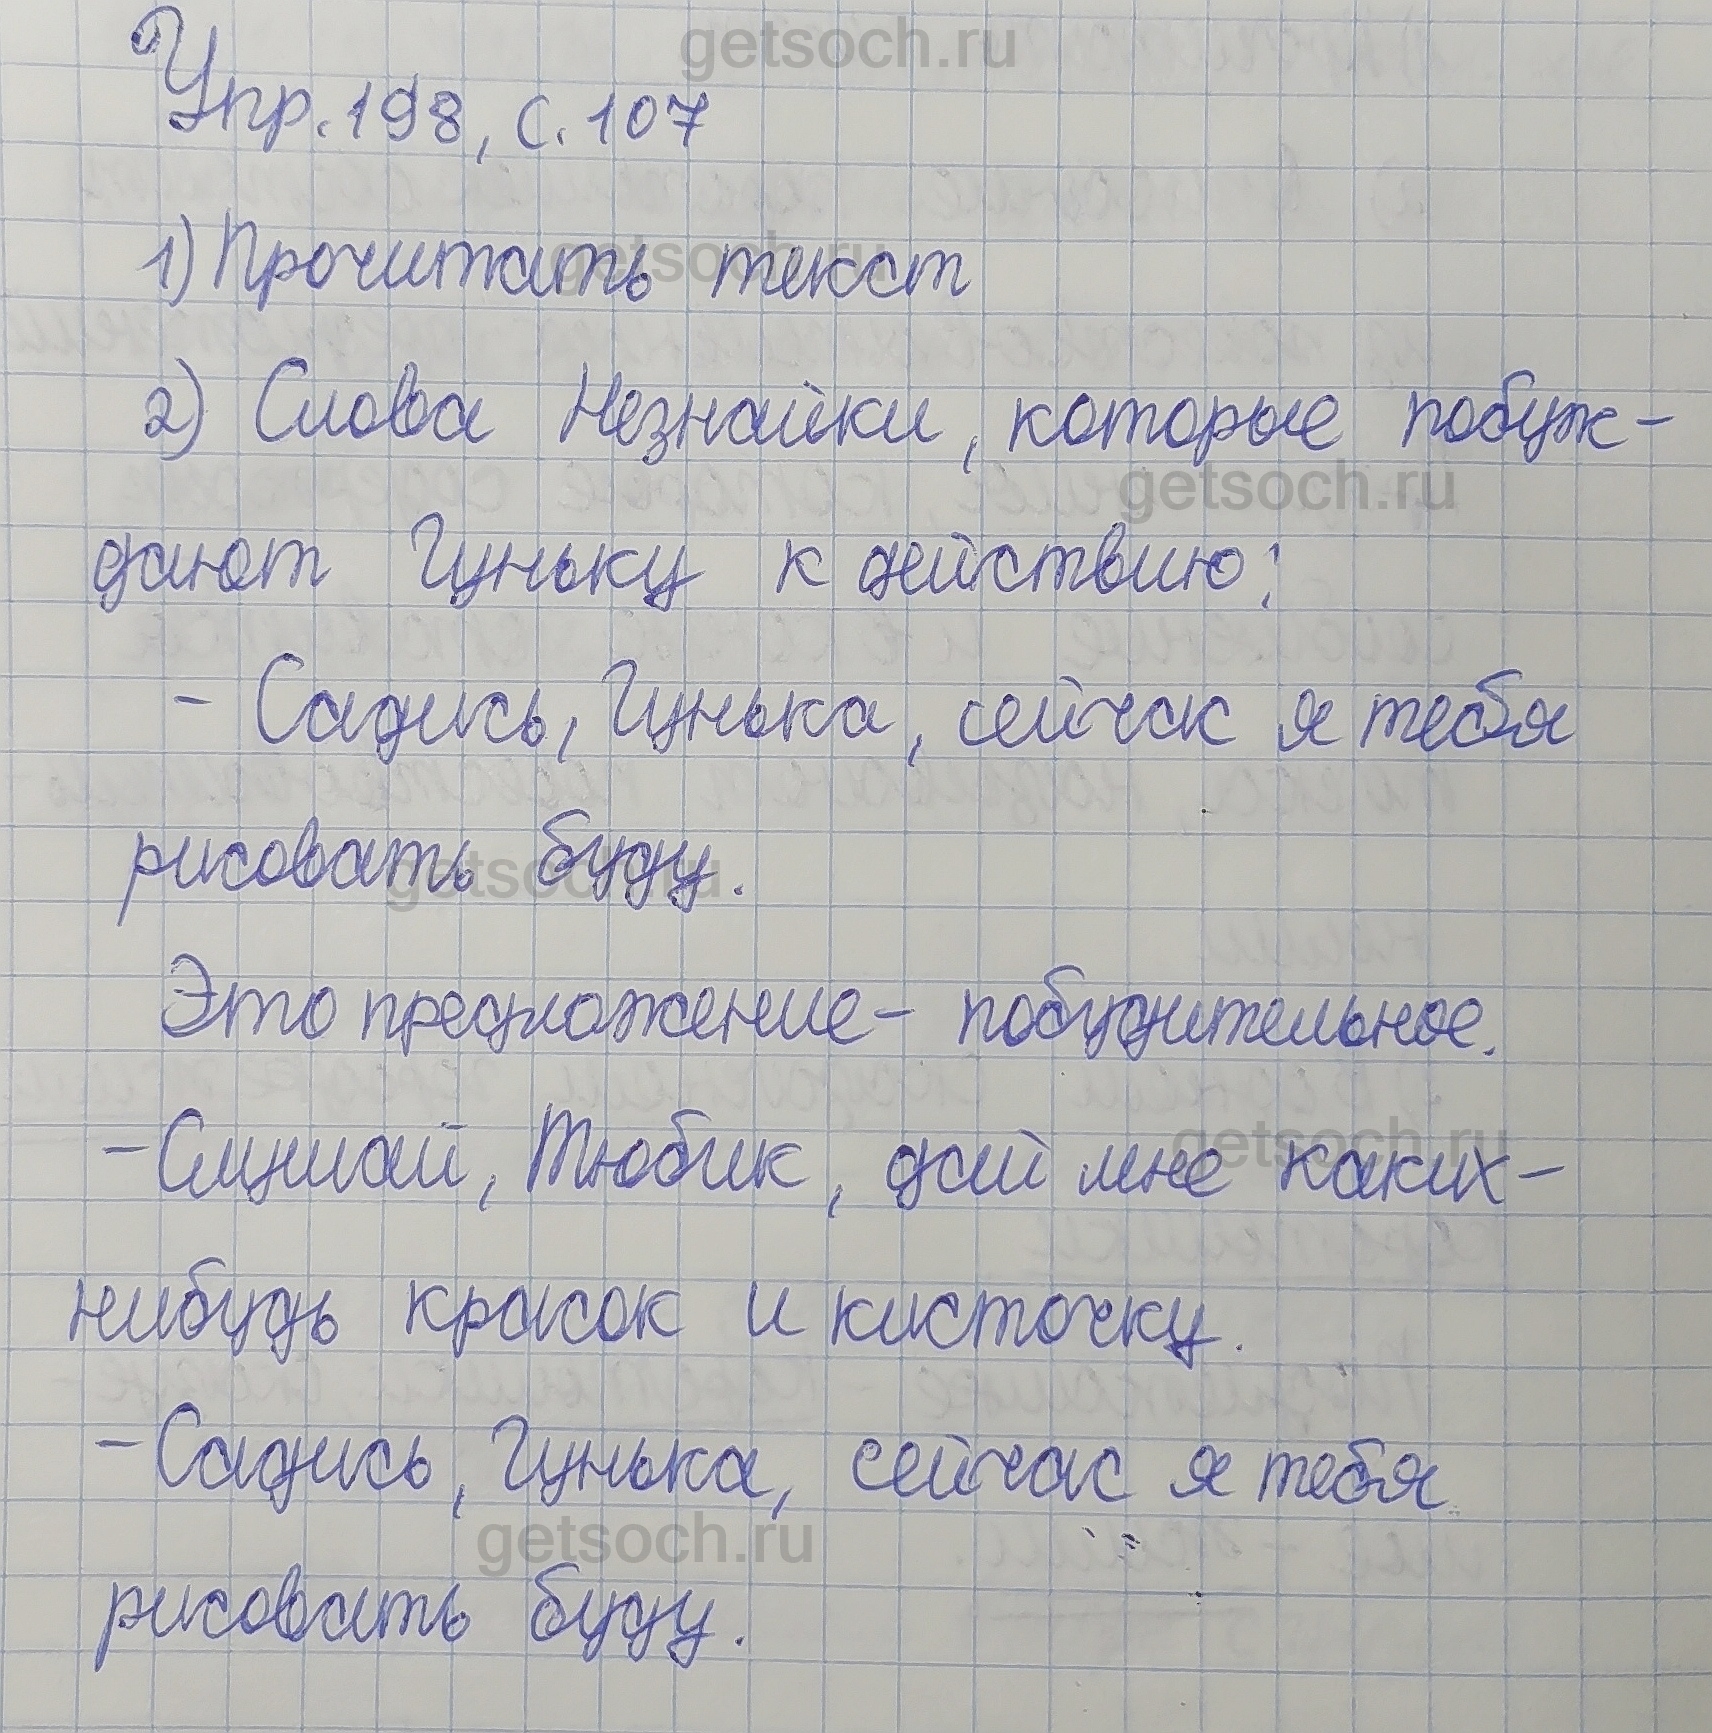 getsoch.ru
Упр. 198, с. 107
1) Прочитать текст
getsoch.ru
2) Слова Незнайки, которые побуж-
getsoch.ru
дают Гуньку к действию:
- Садись, Гунька, сейчас я тебя
рисовать буду.
getsoch.ru
Это предложение - побудительное.
- Слушай, Тюбик, дай мне каких-
getsoch.ru
нибудь красок и кисточку.
- Садись, Гунька, сейчас я тебя
getsoch.ru
рисовать буду.